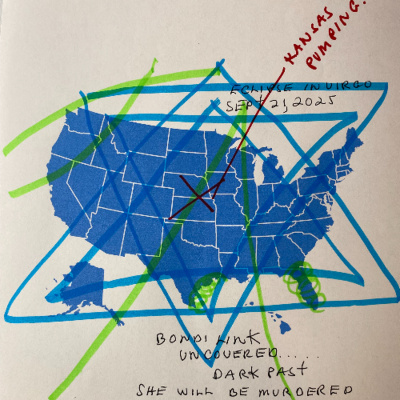 KANSAS
PUMPING!
ECLIPSE IN VIRGO
SEPT 21, 2025
BONDI LINK
UNCOVERED.....
DARK PAST
SHE WILL BE MURDERED